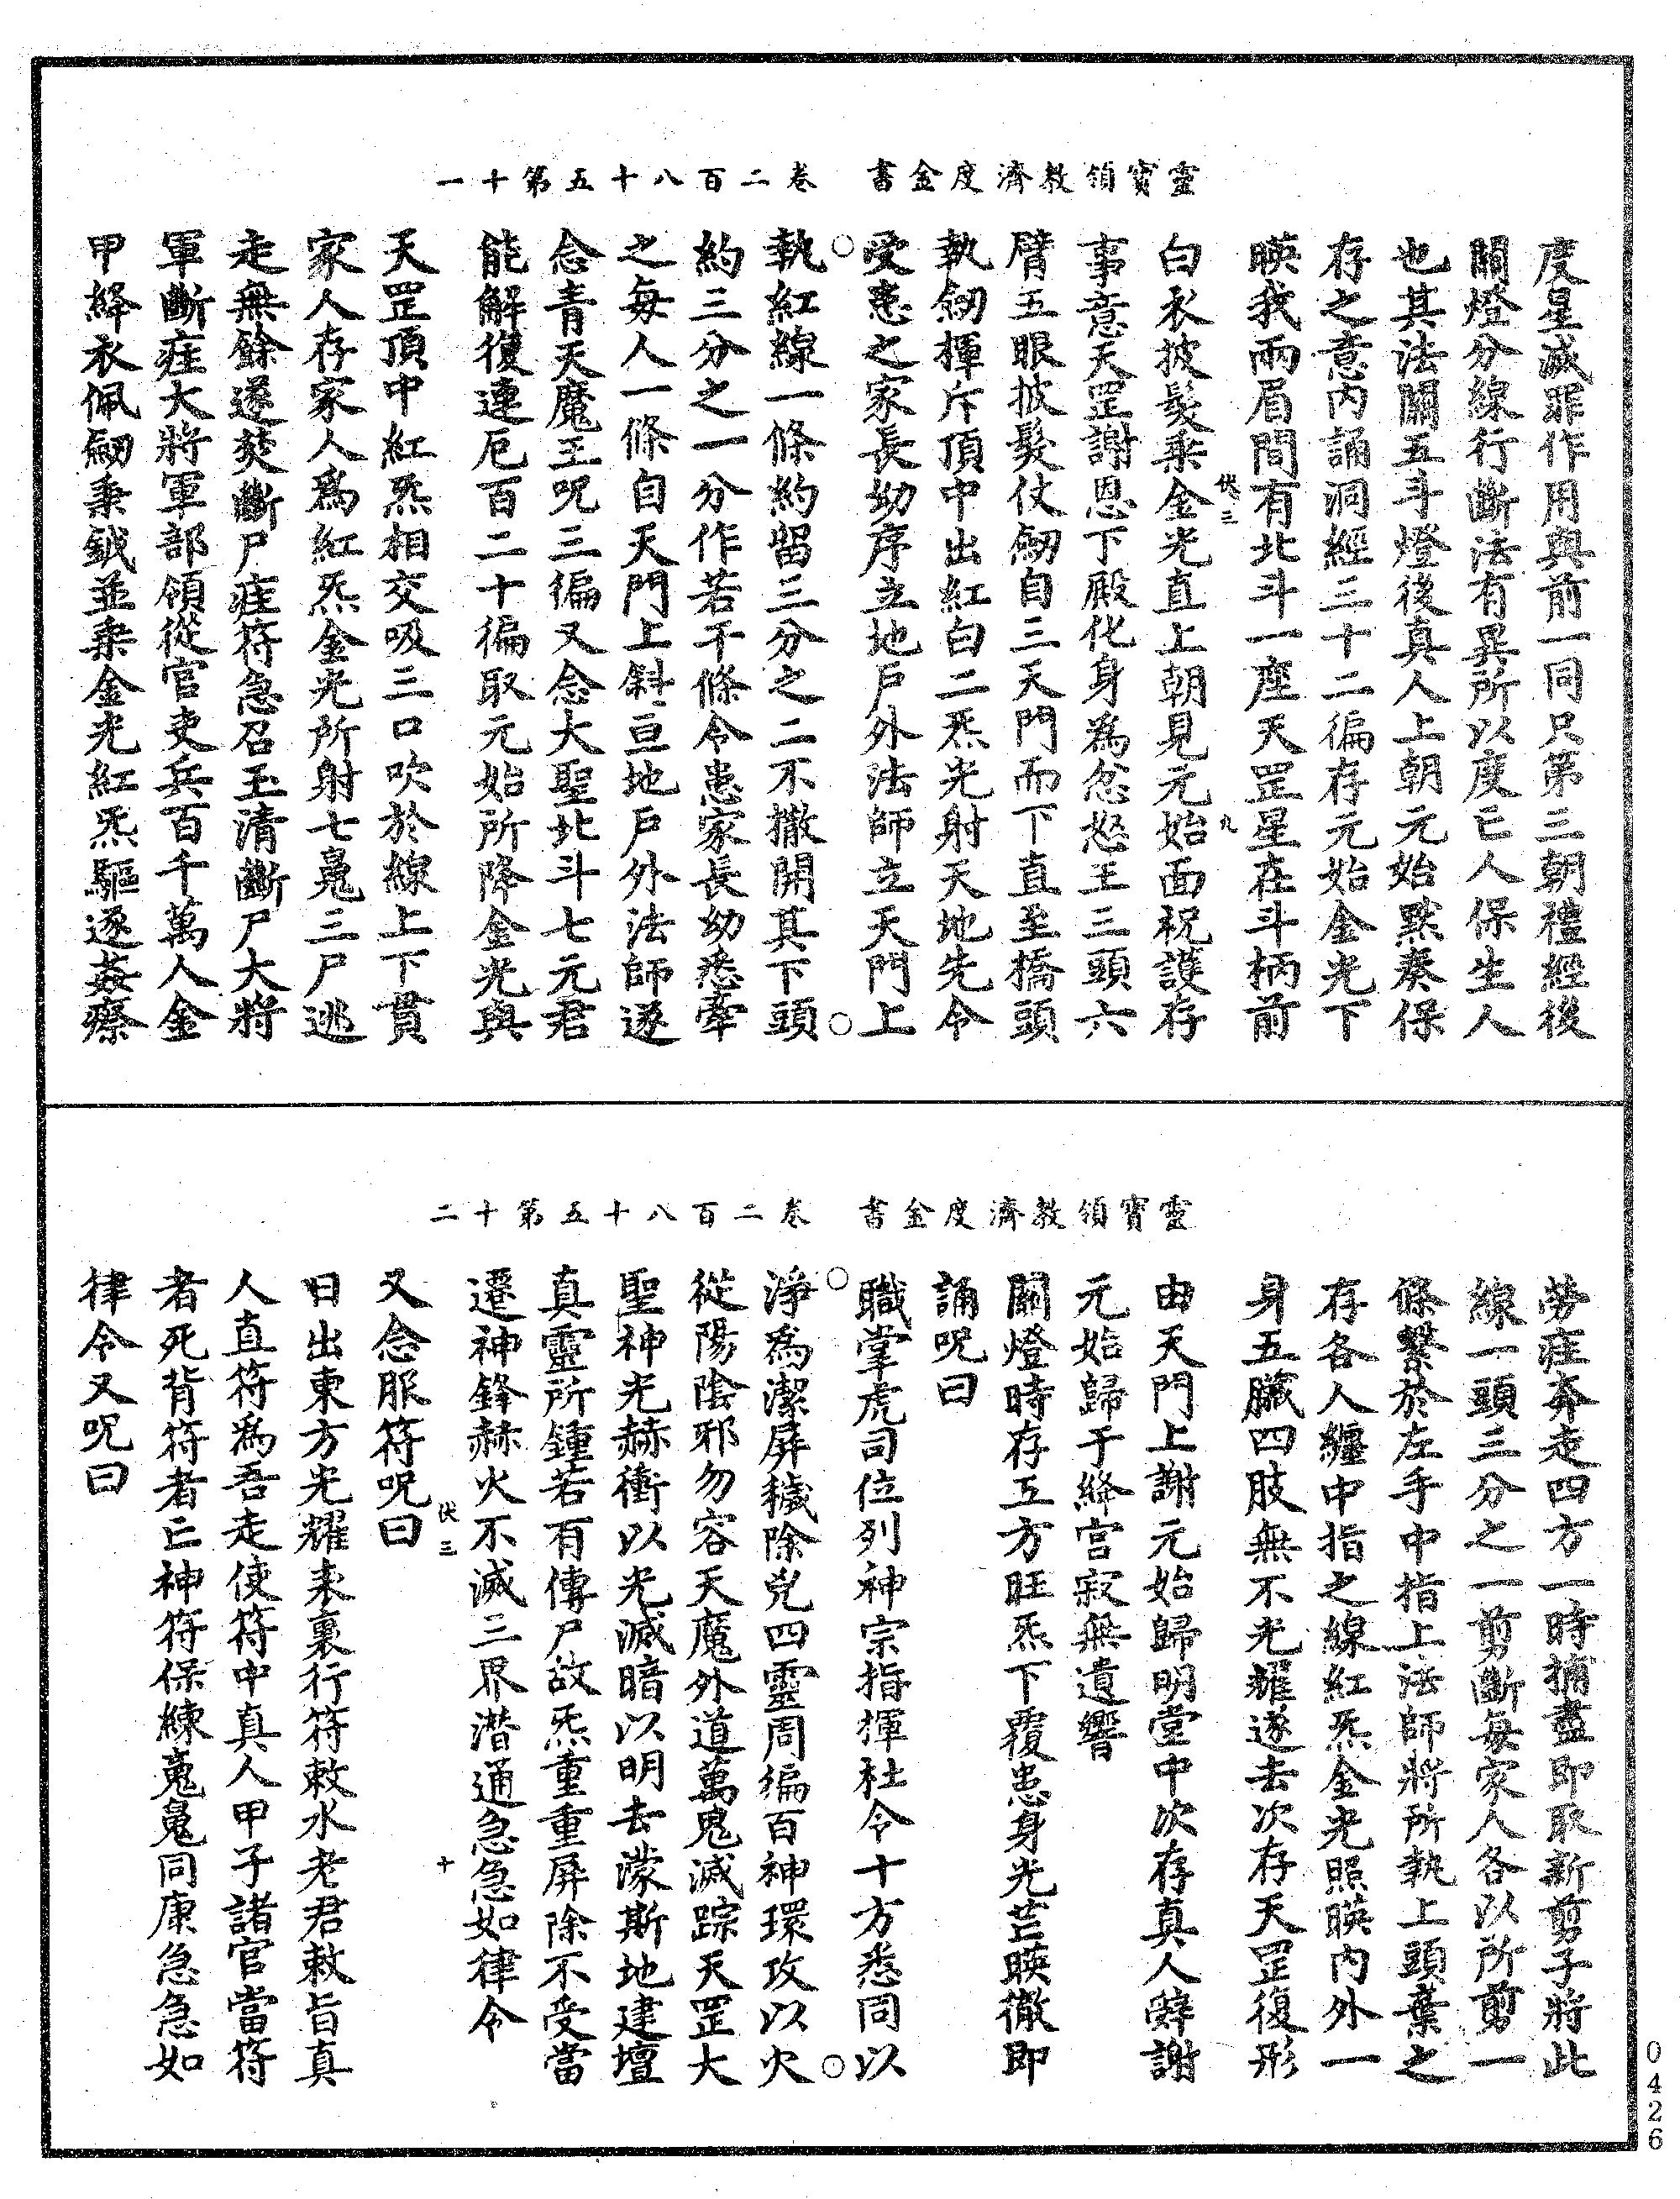 靈寶領教濟度金書　卷二百八十五第十一
度星滅罪作用與前一同只第三朝禮經後
關燈分線行斷法有異所以度亡人保生人
也其法關五斗燈後真人上朝元始默奏保
存之意內誦洞經三十二徧存元始金光下
暎我兩眉間有北斗一座天罡星在斗柄前
伏三　九
白衣披髮乘金光直上朝見元始面祝護存
事意天罡謝恩下殿化身為忿怒王三頭六
臂五眼披髮仗劒自三天門而下直至橋頭
執劒揮斥頂中出紅白二炁光射天地先令
受患之家長幼序立地戶外法師立天門上
執紅線一條約留三分之二不撒開其下頭
約三分之一分作若干條令患家長幼悉牽
之每人一條自天門上斜亘地戶外法師遂
念青天魔王呪三徧又念大聖北斗七元君
能解復連厄百二十徧取元始所降金光與
天罡頂中紅炁相交吸三口吹於線上下貫
家人存家人爲紅炁金光所射七䰟三尸逃
走無餘遂焚斷尸疰符急召玉清斷尸大將
軍斷疰大將軍部領從官吏兵百千萬人金
甲絳衣佩劒秉鉞並乘金光紅炁驅逐姦瘵
靈寶領教濟度金書　卷二百八十五第十二
勞疰奔走四方一時捕盡即取新剪子將此
線一頭三分之一剪斷每家人各以所剪一
條繫於左手中指上法師將所執上頭棄之
存各人纏中指之線紅炁金光照暎內外一
身五臟四肢無不光耀遂去次存天罡復形
由天門上謝元始歸明堂中次存真人辭謝
元始歸于絳宮寂無遺響
關燈時存五方旺炁下覆患身光芒暎徹即
誦呪曰
職掌虎司位列神宗指揮社令十方悉同以
淨爲潔屏穢除兇四靈周徧百神環攻以火
從陽陰邪勿容天魔外道萬鬼滅踪天罡大
聖神光赫衝以光滅暗以明去濛斯地建壇
真靈所鍾若有傳尸故炁重重屏除不受當
遷神鋒赫火不滅三界潛通急急如律令
伏三　十
又念服符呪曰
日出東方光耀表裏行符敕水老君敕旨真
人直符爲吾走使符中真人甲子諸官當符
者死背符者亡神符保練䰟䰟同康急急如
律令又呪曰
0426